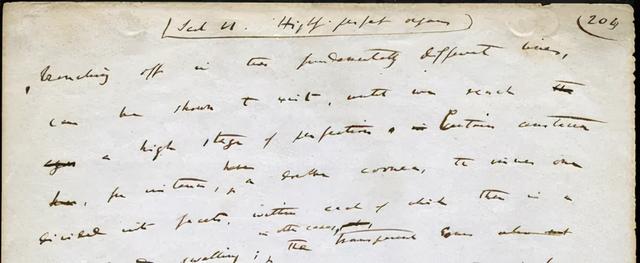 Highly perfect organs) (204
branching off in two fundamentally different lines,
can be shown to exist, until we reach
a high stage of perfection. Certain crustacea
have
for instance, a double cornea, the inner one
divided into facets, within each of which there is a
in other cases,
swelling; the transparent cones